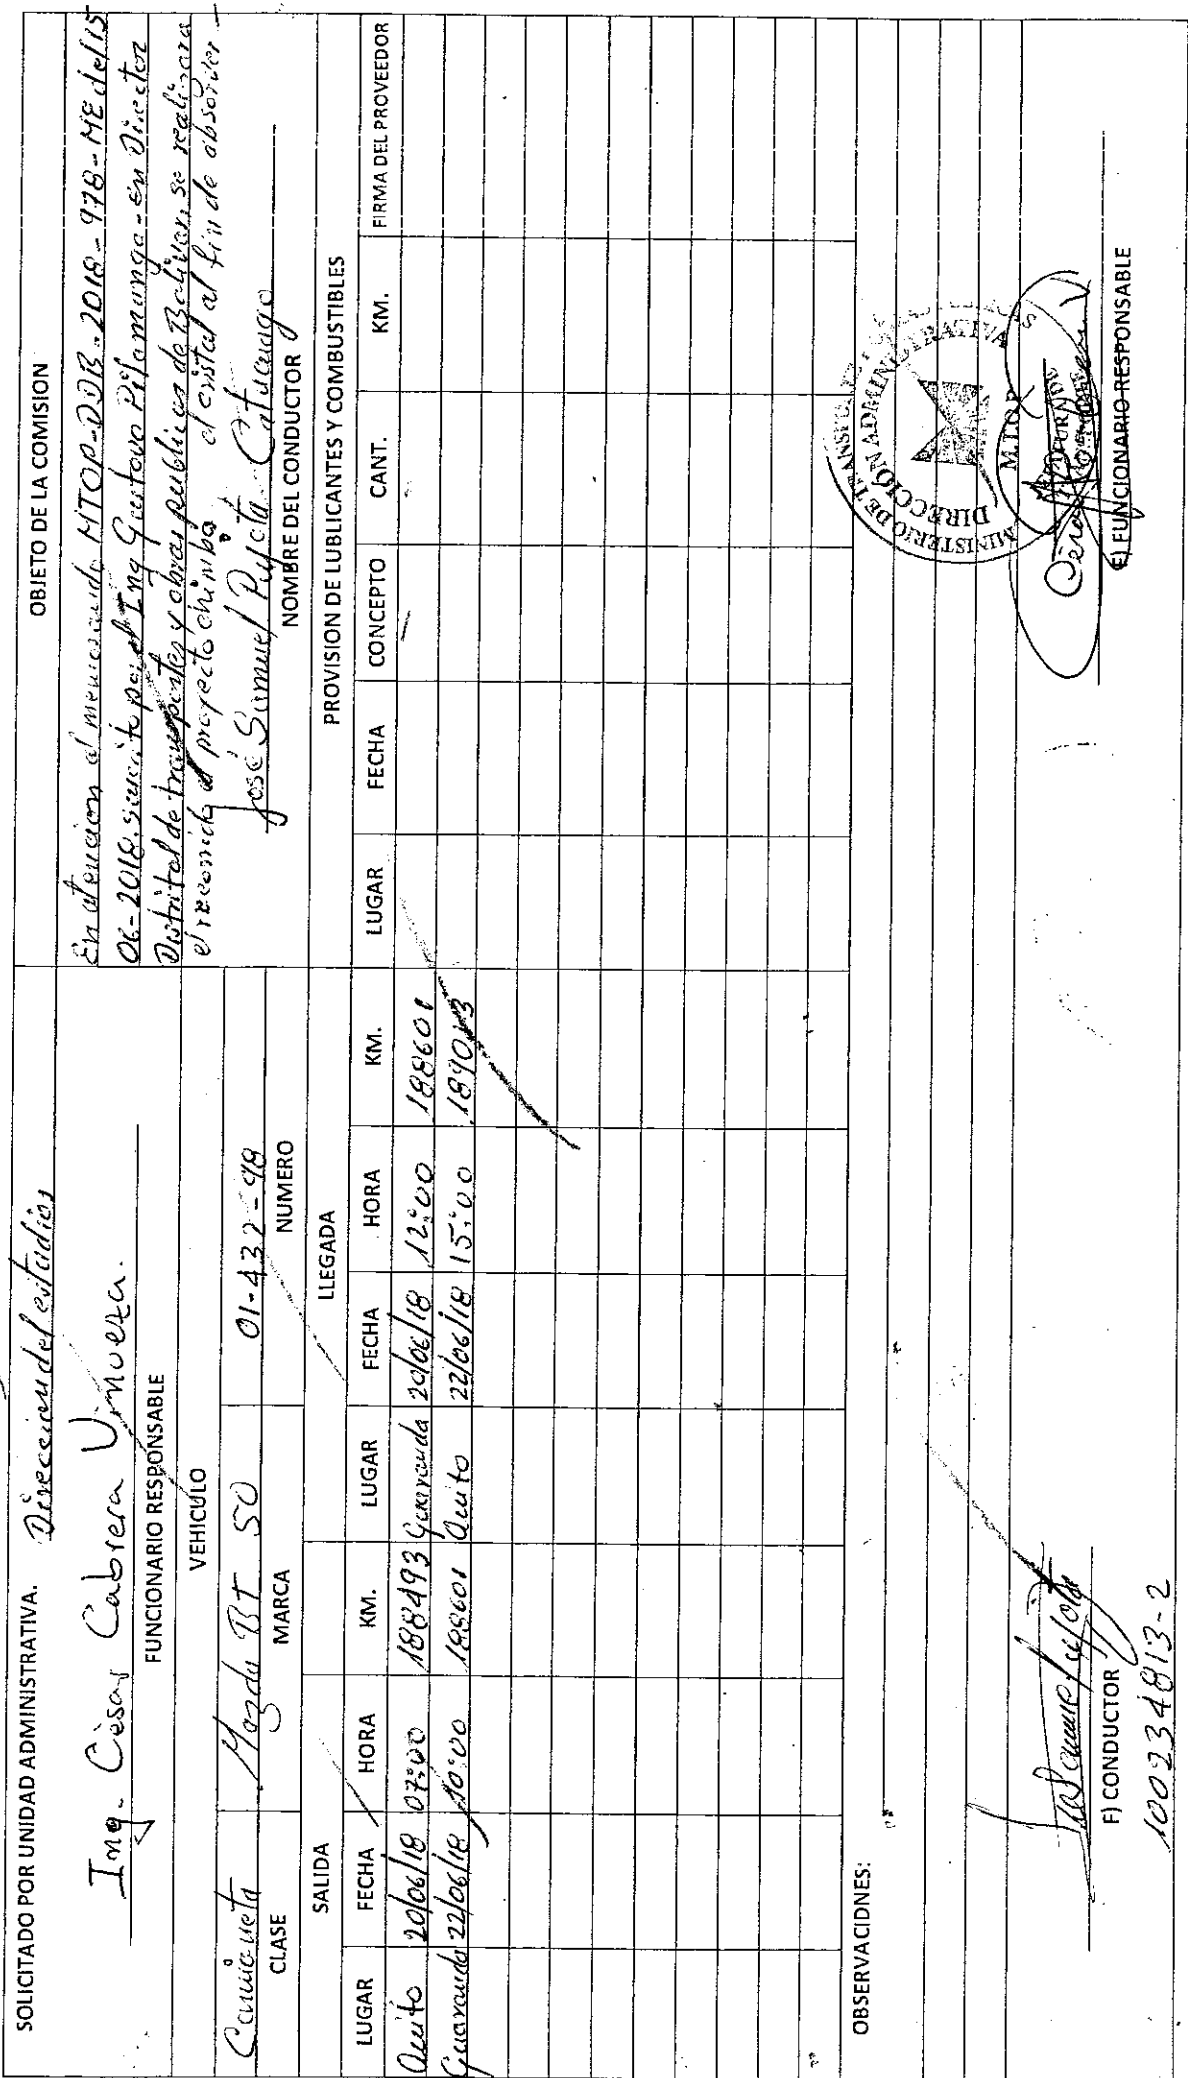 SOLICITADO POR UNIDAD ADMINISTRATIVA. Direccion del estudios
Ing. Cèsar Cabrera Umueza.
FUNCIONARIO RESPONSABLE
VEHICULO
Camioneta Mazda BT 50 01-432-98
CLASE MARCA NUMERO
OBJETO DE LA COMISION
En atencion al memorando MTOP-DDB-2018-978-ME del 15
06-2018, suscrito por el Ing Gustavo Pilamunga - En Director
Distrital de transportes y obras publicas de Bolivar, se realizara
el recorrido al proyecto chimbo el cristal al fin de absorver
José Samuel Pujota Catucuago
NOMBRE DEL CONDUCTOR
SALIDA LLEGADA PROVISION DE LUBLICANTES Y COMBUSTIBLES
LUGAR FECHA HORA KM. LUGAR FECHA HORA KM. LUGAR FECHA CONCEPTO CANT. KM. FIRMA DEL PROVEEDOR
Quito 20/06/18 07:00 188493 Guaranda 20/06/18 12:00 188601
Guaranda 22/06/18 10:00 188601 Quito 22/06/18 15:00
OBSERVACIDNES:
MINISTERIO DE TRANSPORTE
DIRECCIÓN ADMINISTRATIVA
M.T.O.P.
F) CONDUCTOR
100234813-2
F) FUNCIONARIO RESPONSABLE